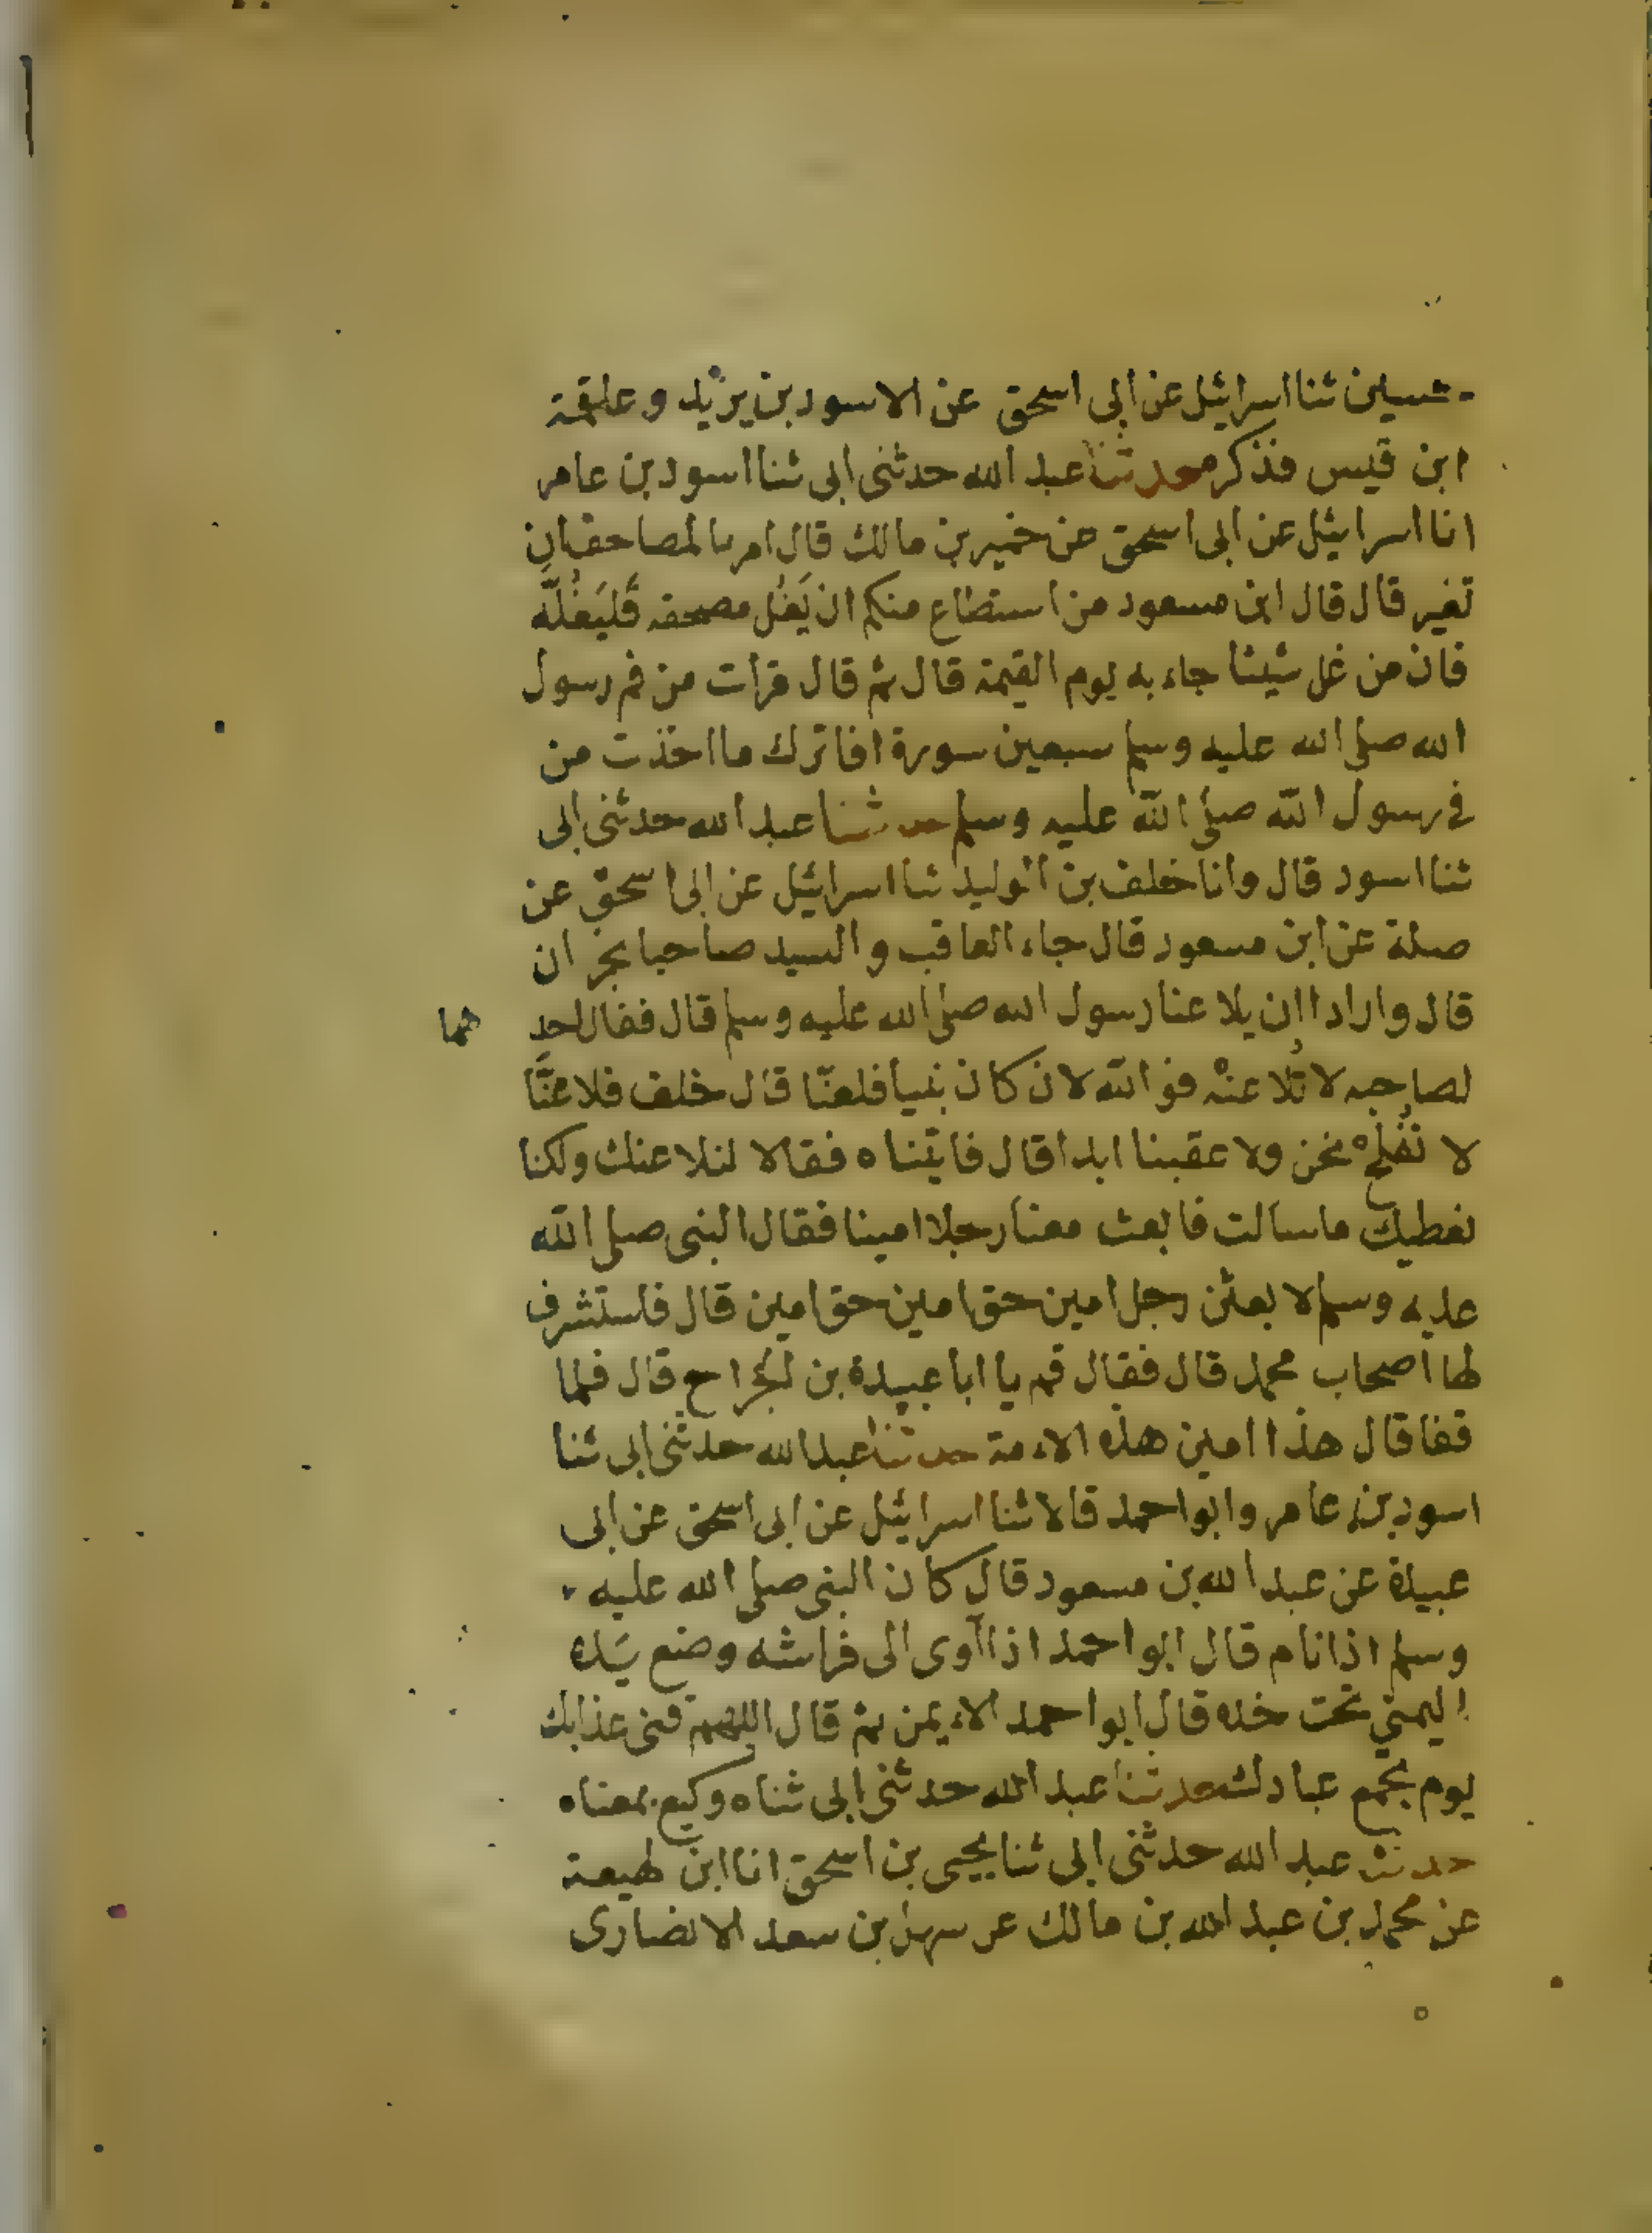 حسين ثنا اسرائيل عن ابى اسحق عن الاسود بن يزيد وعلقمة
ابن قيس فذكره حدثنا عبد الله حدثنى ابى ثنا اسود بن عامر
انا اسرائيل عن ابى اسحق عن خمير بن مالك قال امر بالمصاحف ان
تغير قال قال ابن مسعود من استطاع منكم ان يَغُل مصحفه فَليَغُلَّه
فان من غل شيئا جاء به يوم القيمة قال ثم قال قرأت من فم رسول
الله صلى الله عليه وسلم سبعين سورة افاترك ما اخذت من
فى رسول الله صلى الله عليه وسلم حدثنا عبد الله حدثنى ابى
ثنا اسود قال وانا خلف بن الوليد ثنا اسرائيل عن ابى اسحق عن
صلة عن ابن مسعود قال جاء العاقب والسيد صاحبا نجران
قال وارادا ان يلاعنا رسول الله صلى الله عليه وسلم قال فقال احدهما
لصاحبه لا تُلاعنْه فوالله لان كان نبيا فلعنّا قال خلف فلاعنَّا
لا نُفلحْ نحن ولا عقبنا ابدا قال فاتيناه فقالا لنلاعنك ولكنا
نعطيك ما سالت فابعث معنا رجلا امينا فقال النبى صلى الله
عليه وسلم لابعثن رجل امين حق امين حق امين قال فاستشرف
لها اصحاب محمد قال فقال قم يا ابا عبيدة بن الجراح قال فلما
قفا قال هذا امين هذه الاءمة حدثنا عبد الله حدثنى ابى ثنا
اسود بن عامر وابو احمد قالا ثنا اسرائيل عن ابى اسحق عن ابى
عبيدة عن عبد الله بن مسعود قال كان النبى صلى الله عليه
وسلم اذا نام قال ابو احمد اذا آوى الى فراشه وضع يَده
اليمنى تحت خده قال ابو احمد الاءيمن ثم قال اللهم قنى عذابك
يوم تجمع عبادك حدثنا عبد الله حدثنى ابى ثناه وكيع بمعناه
حدثنا عبد الله حدثنى ابى ثنا يحيى بن اسحق انا ابن لهيعة
عن محمد بن عبد الله بن مالك عن سهل بن سعد الانصارى